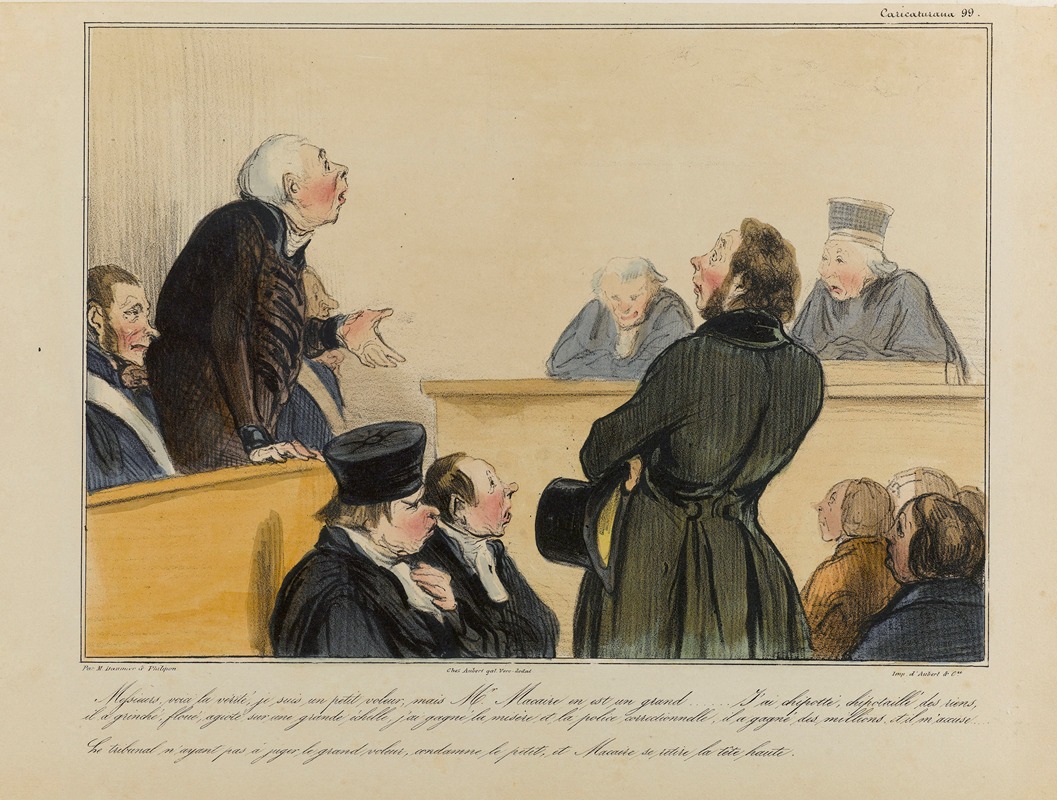 Caricaturana 99.
Par M. Daumier & Philipon
Chez Aubert gal. Véro-dodat
Imp. d'Aubert & Cie
Messieurs, voici la vérité, je suis un petit voleur, mais Mr. Macaire en est un grand ...... J'ai chipotté, chipotaillé des riens,
il a grinché, floué, agioté sur une grande échelle, j'ai gagné la misère et la police correctionnelle, il a gagné des millions, et il m'accuse...
Le tribunal n'ayant pas à juger le grand voleur, condamne le petit, et Macaire se retire la tête haute.